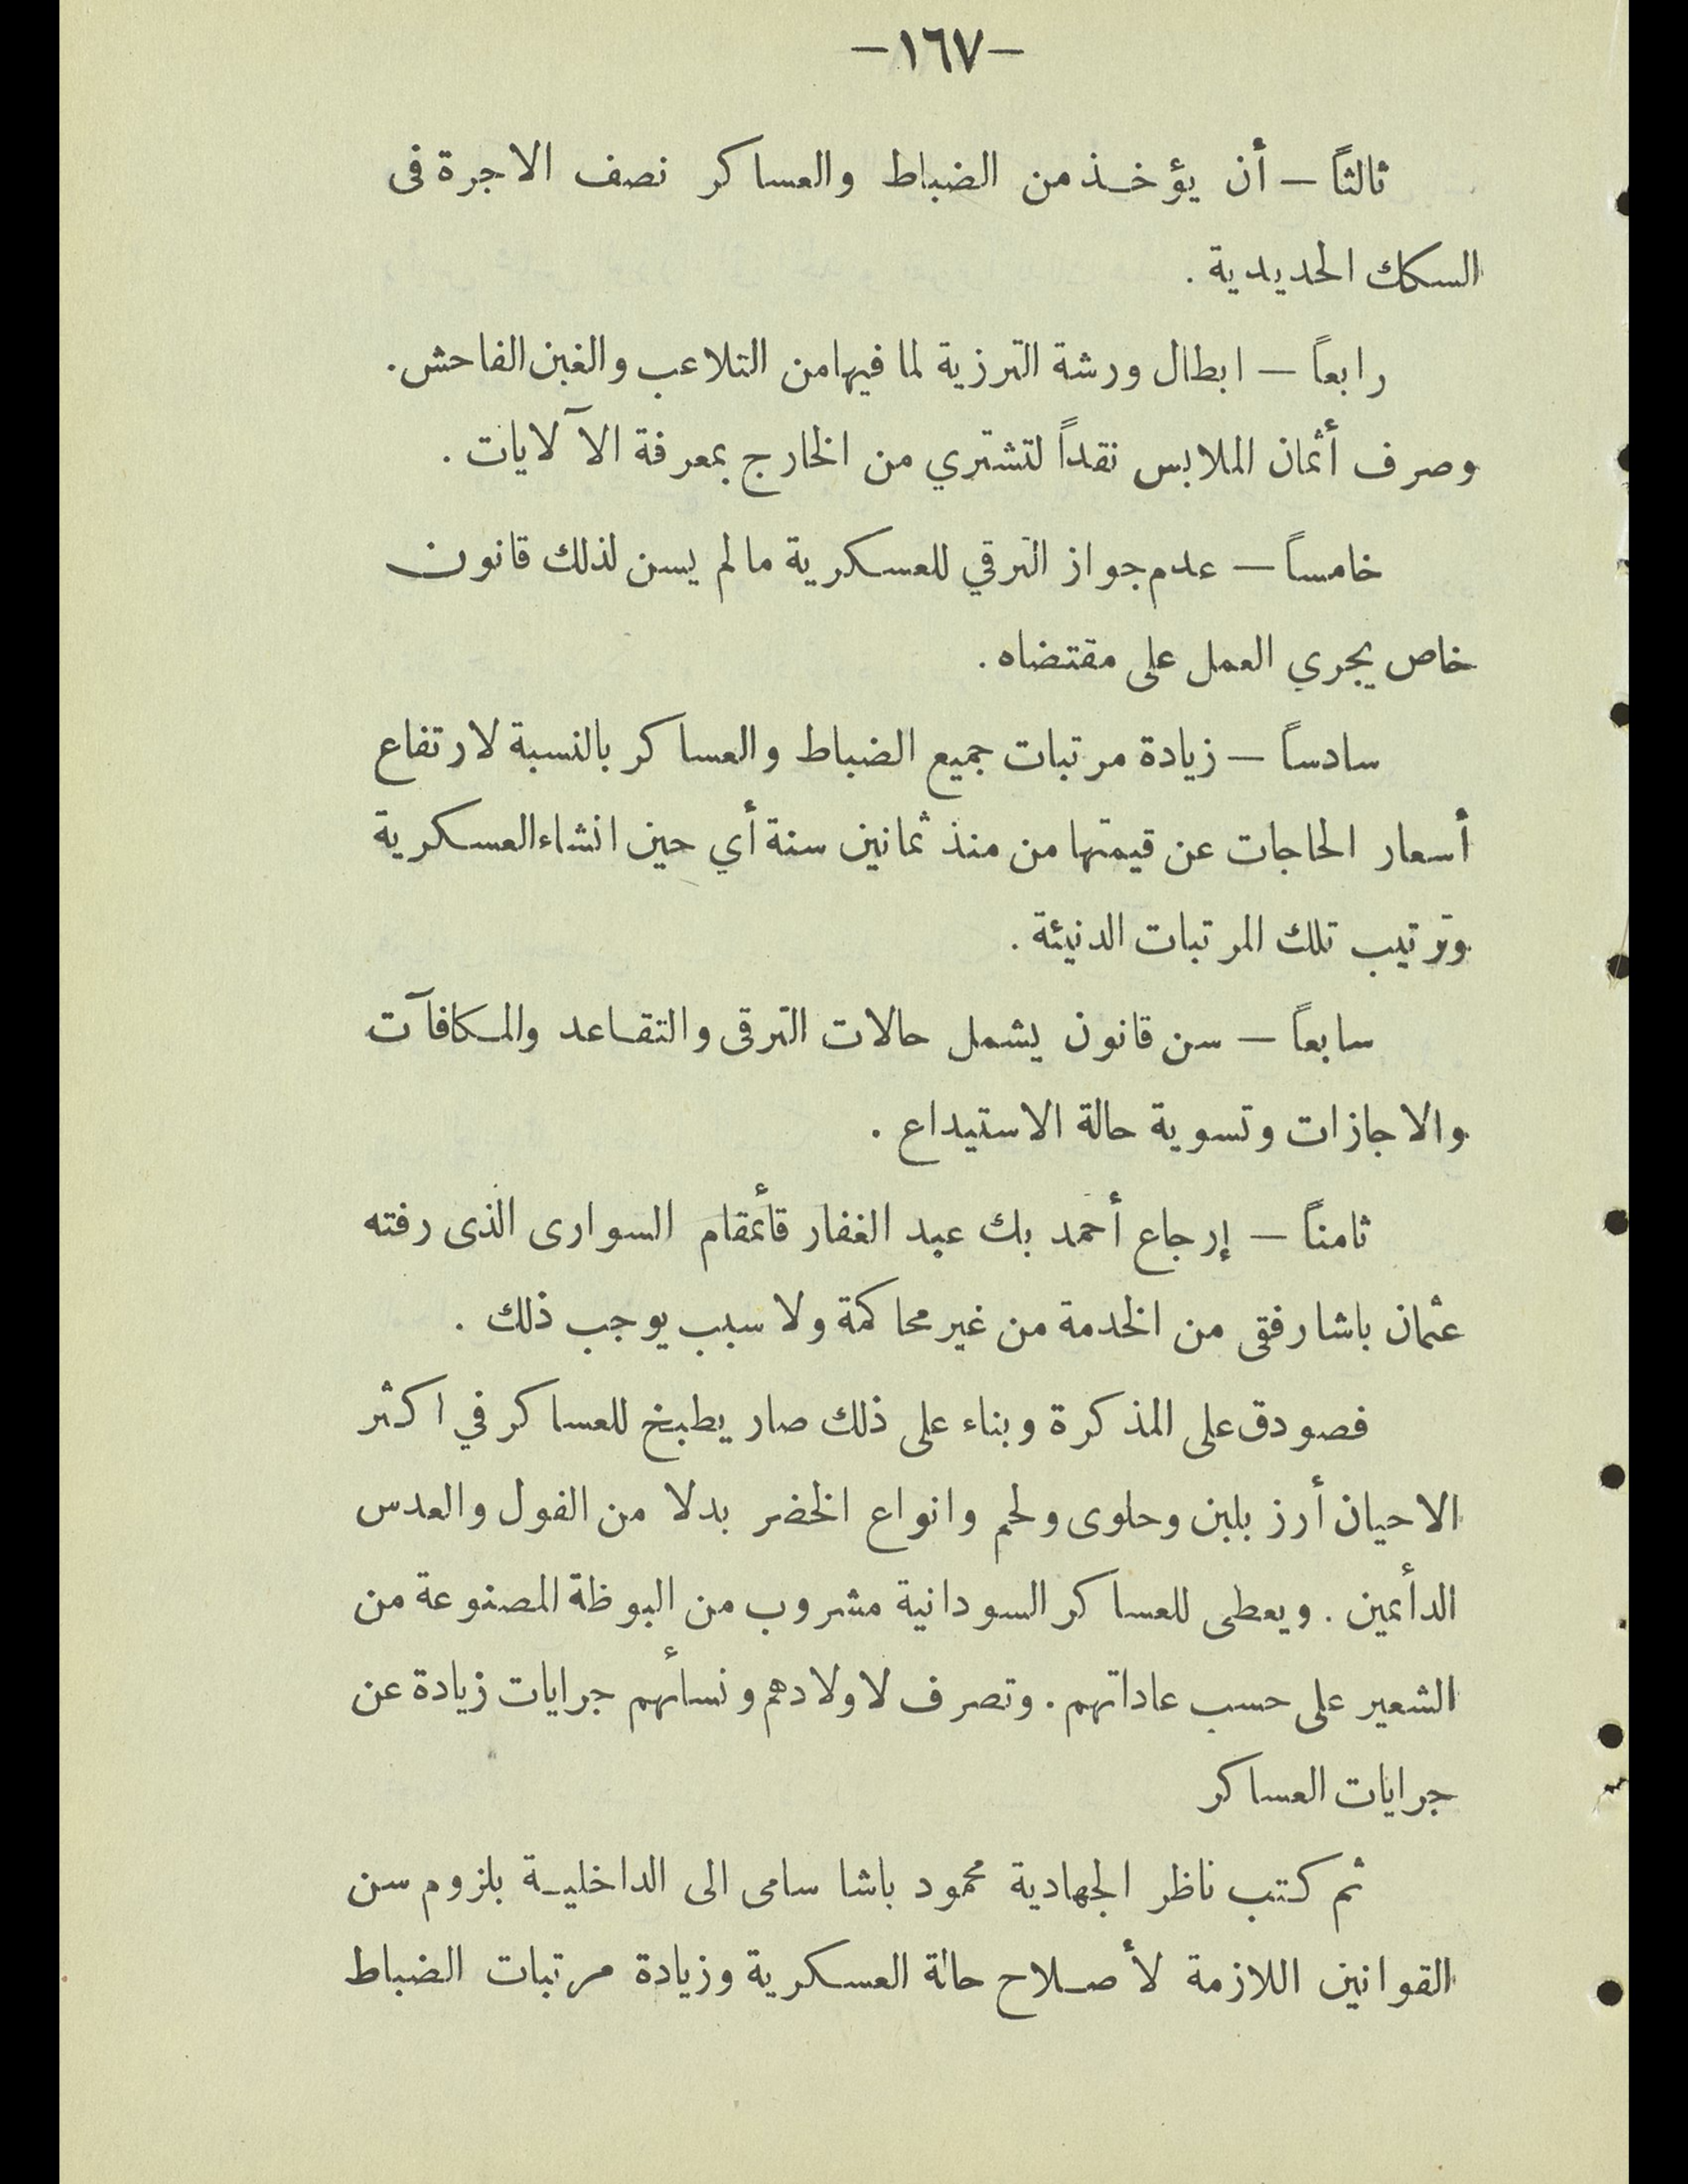 -١٦٧-
ثالثاً — أن يؤخذ من الضباط والعساكر نصف الاجرة فى
السكك الحديدية .
رابعاً — ابطال ورشة الترزية لما فيهامن التلاعب والغبن الفاحش .
وصرف أثمان الملابس نقداً لتشتري من الخارج بمعرفة الآلايات .
خامساً — عدم جواز الترقي للعسكرية مالم يسن لذلك قانون
خاص يجري العمل على مقتضاه .
سادساً — زيادة مرتبات جميع الضباط والعساكر بالنسبة لارتفاع
أسعار الحاجات عن قيمتها من منذ ثمانين سنة أي حين انشاء العسكرية
وترتيب تلك المرتبات الدنيئة .
سابعاً — سن قانون يشمل حالات الترقى والتقاعد والمكافآت
والاجازات وتسوية حالة الاستيداع .
ثامناً — إرجاع أحمد بك عبد الغفار قأئمقام السوارى الذى رفته
عثمان باشا رفقى من الخدمة من غير محاكمة ولا سبب يوجب ذلك .
فصودق على المذكرة وبناء على ذلك صار يطبخ للعساكر في اكثر
الاحيان أرز بلبن وحلوى ولحم وانواع الخضر بدلا من الفول والعدس
الدأئمين . ويعطى للعساكر السودانية مشروب من البوظة المصنوعة من
الشعير على حسب عاداتهم . وتصرف لاولادهم ونسأئهم جرايات زيادة عن
جرايات العساكر
ثم كتب ناظر الجهادية محمود باشا سامى الى الداخلية بلزوم سن
القوانين اللازمة لأصلاح حالة العسكرية وزيادة مرتبات الضباط